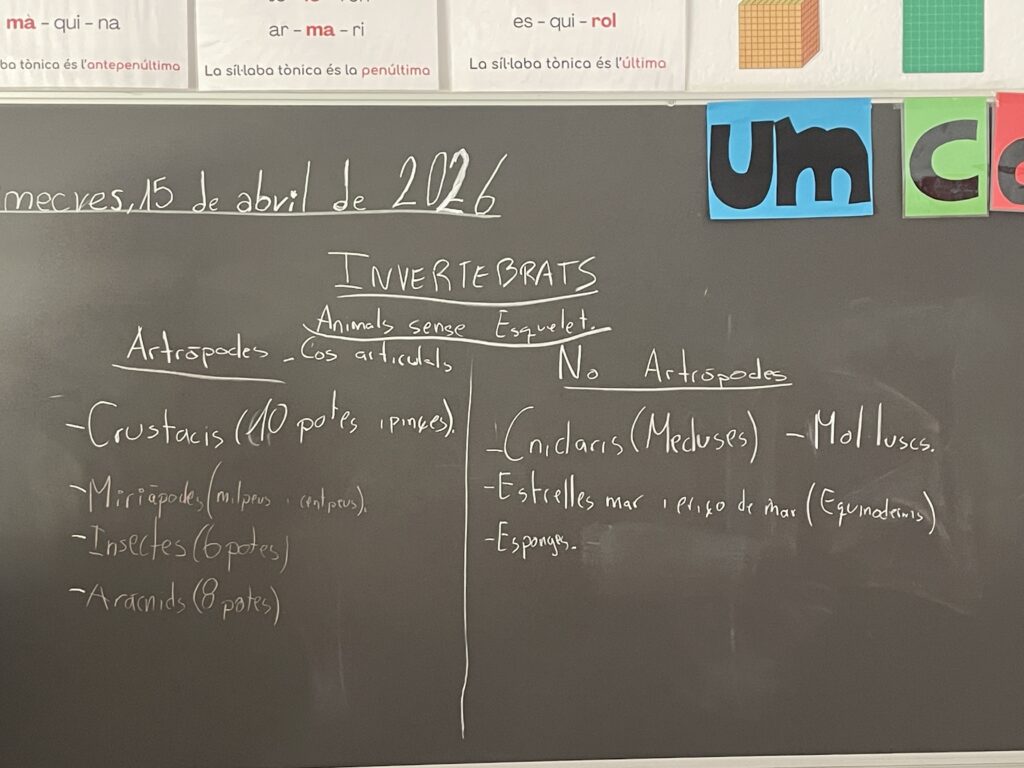 mà - qui - na
ba tònica és l'antepenúltima
ar - ma - ri
La síl·laba tònica és la penúltima
es - qui - rol
La síl·laba tònica és l'última
UM C
mecres, 15 de abril de 2026
INVERTEBRATS
Animals sense Esquelet.
Artròpodes - Cos articulats
- Crustacis (10 potes i pinçes).
- Miriàpodes (milpeus i centpeus).
- Insectes (6 potes)
- Aràcnids (8 potes)
No Artròpodes
- Cnidaris (Meduses) - Mol luscs.
- Estrelles mar i eriço de mar (Equinoderms)
- Esponges.